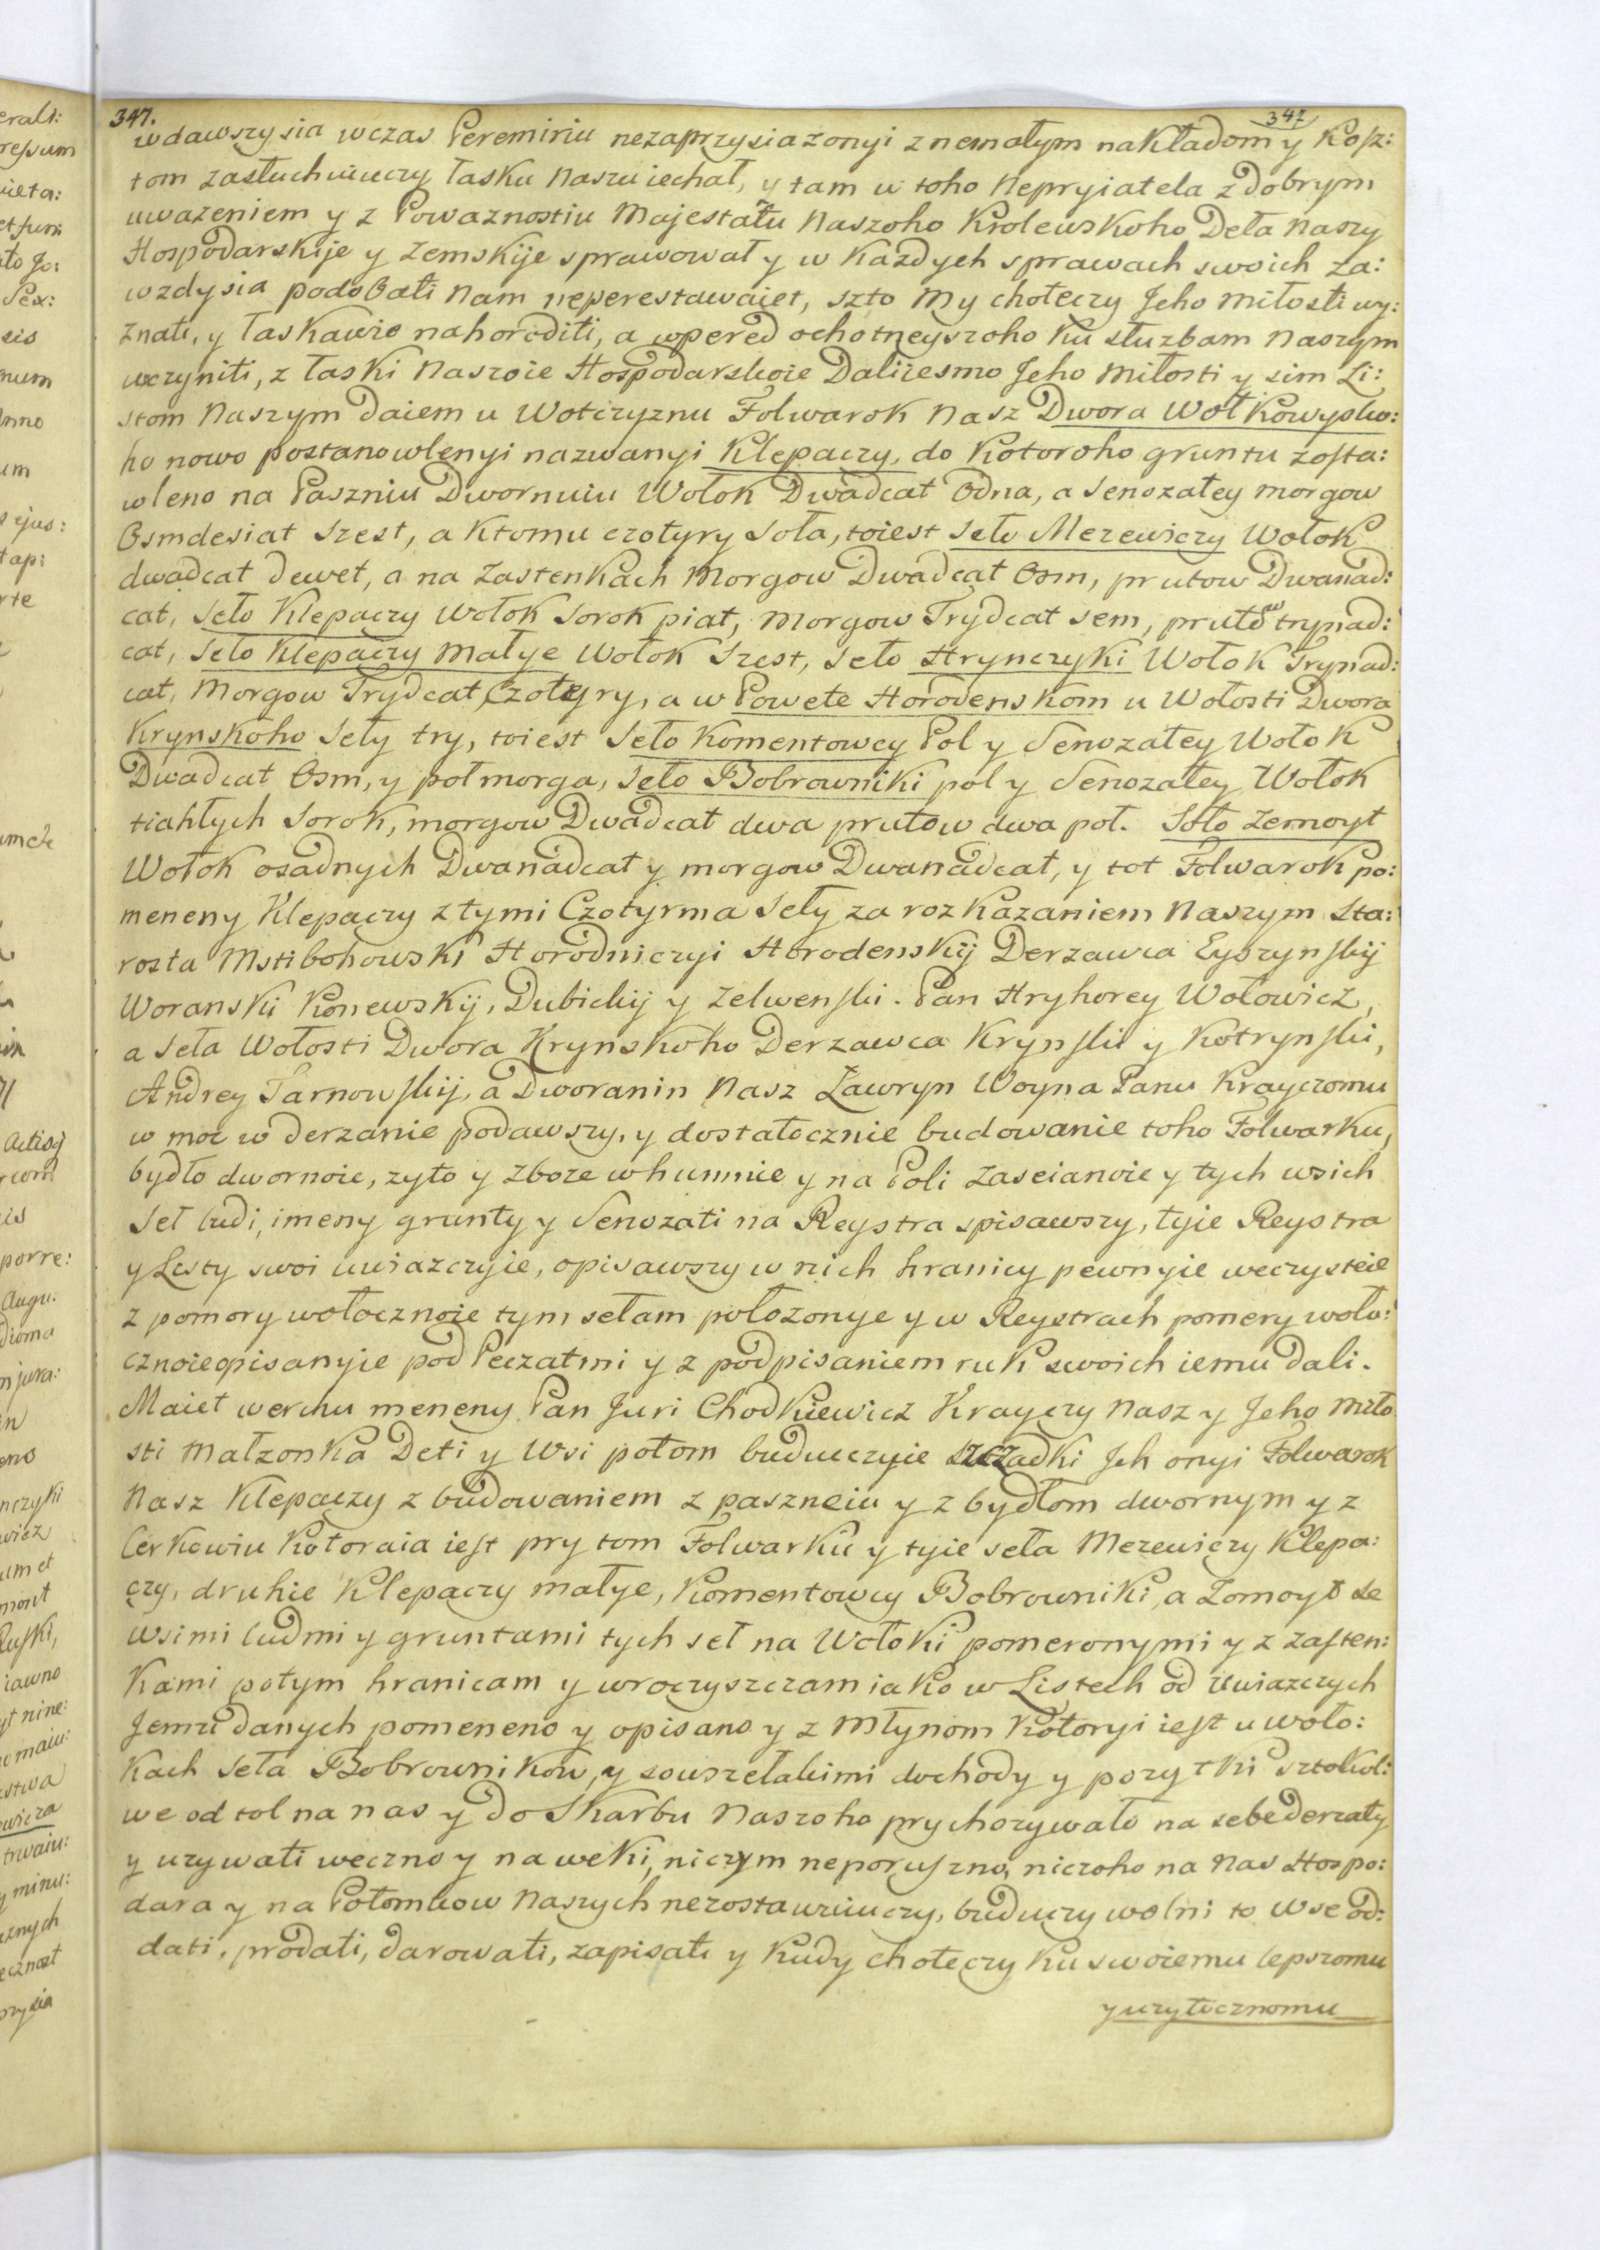 347. 347
wdawszysia wczas Peremiriu nezaprzysiazonyi z nemałym nakładom y Kosz:
tom zasłuchuiuczy łasku naszu iechał, y tam u toho nepryiatela z dobrym
uwazeniem y z Powaznostiu Majestatu Naszoho Krolewskoho Deła naszy
Hospodarskije y zemskije sprawował y w kazdych sprawach swoich za:
wzdysia podobati nam neperestawaiet, szto my choteczy Jeho miłosti wy:
znati, y łaskawie nahoroditi, a wpered ochotneyszoho ku służbam naszym
uczyniti, z łaski naszoie Hospodarskoie Daliiesmo Jeho miłosti y sim Li:
stom naszym daiem u Wotczyznu Folwarok nasz Dwora Wołkowysko:
ho nowo postanowlenyi nazwanyi Klepaczy, do kotoroho gruntu zosta:
wleno na Paszniu Dwornuiu Wołok Dwadcat Odna, a Senozatey morgow
Osmdesiat szest, a ktomu czotyry soła, toiest Seło Mezewiczy Wołok
dwadcat dewet, a na zastenkach Morgow Dwadcat Osm, prutow Dwanad:
cat, Seło Klepaczy wołok sorok piat, morgow Trydcat sem, prutow trynad:
cat, Seło Klepaczy małye Wołok szest, Seło Hrynczyki Wołok Trynad:
cat, Morgow Trydcat Czotyry, a w Powete Horodenskom u Wołosti Dwora
Krynskoho Seły try, toiest Seło Komentowcy Pol y Senozatey Wołok
Dwadcat Osm, y połmorga, Seło Bobrowniki pol y Senozatey Wołok
tiahłych sorok, morgow Dwadcat dwa prutow dwa poł. Soło Zemoyt
Wołok osadnych Dwanadcat y morgow Dwanadcat, y tot Folwarok po:
meneny Klepaczy z tymi Czotyrma Seły za rozkazaniem naszym sta:
rosta Mstibohowski Horodniczyi Horodenskij Derzawca Eyszynskij
Woranski Konewskij, Dubickij y Zelwenski. Pan Hryhorey Wołowicz,
a Seła Wołosti Dwora Krynskoho Derzawca Krynski y Kotrynski,
Andrey Tarnowskij, a Dworanin nasz Ławryn Woyna Panu Krayczomu
w moc w derzanie podawszy, y dostatocznie budowanie toho Folwarku,
bydło dwornoie, zyto y zboze whumnie y na Poli zaseianoie y tych wsich
Seł ludi, imeny grunty y Senozati na Reystra spisawszy, tyie Reystra
y Listy swoi uwiazczyie, opisawszy w nich hranicy pewnyie weczysteie
z pomory wołocznoie tym sełam połozonye y w Reystrach pomery woło:
cznoieopisanyie pod Peczatmi y z podpisaniem ruk swoich iemu dali.
Maiet werchu meneny Pan Juri Chodkiewicz Krayczy nasz y Jeho miło
sti małzonka Deti y Wsi potom buduczyie szczadki Jch onyi Folwarok
nasz Klepaczy z budowaniem z paszneiu y z bydłom dwornym y z
Cerkowiu kotoraia iest pry tom Folwarku y tyie seła Mezewiczy Klepa:
czy, druhie Klepaczy małye, Komentowcy Bobrowniki, a Zomoyt se
wsimi ludmi y gruntami tych seł na Wołoki pomeronymi y z zasten:
kami potym hranicam y wroczyszczam iako w Listech od uwiazczych
Jemu danych pomeneno y opisano y z młynom kotoryi iest u woło:
kach seła Bobrownikow, y sowszelakimi dochody y pozytki sztokol:
we od tol na nas y do Skarbu naszoho prychozywało na sebe derzaty
y uzywati weczno y na weki, niczym neporuszno, niczoho na nas Hospo:
dara y na Potomkow naszych nezostawuiuczy, buduczy wolni to wse od:
dati, prodati, darowati, zapisati y kudy choteczy ku swoiemu lepszomu
y uzytocznomu